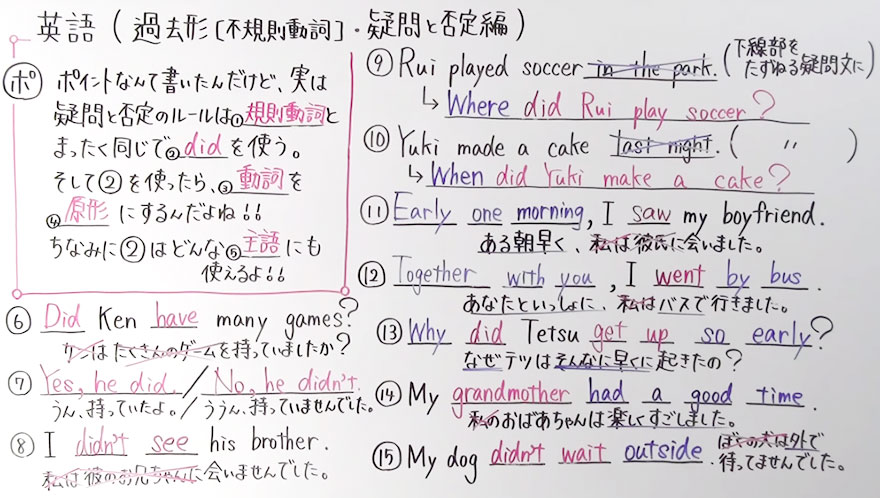 英語 ( 過去形 [不規則動詞]・疑問と否定編 )
ポ ポイントなんて書いたんだけど、実は
疑問と否定のルールは①規則動詞と
まったく同じで②didを使う。
そして②を使ったら、③動詞を
④原形にするんだよね!!
ちなみに②はどんな⑤主語にも
使えるよ!!
⑥ Did Ken have many games?
ケンはたくさんのゲームを持っていましたか?
⑦ Yes, he did. / No, he didn't.
うん、持っていたよ。/ ううん、持っていませんでした。
⑧ I didn't see his brother.
私は彼のお兄ちゃんに会いませんでした。
⑨ Rui played soccer in the park. (下線部を
たずねる疑問文に)
↳ Where did Rui play soccer?
⑩ Yuki made a cake last night. ( 〃 )
↳ When did Yuki make a cake?
⑪ Early one morning, I saw my boyfriend.
ある朝早く、私は彼氏に会いました。
⑫ Together with you, I went by bus.
あなたといっしょに、私はバスで行きました。
⑬ Why did Tetsu get up so early?
なぜテツはそんなに早くに起きたの?
⑭ My grandmother had a good time.
私のおばあちゃんは楽しくすごしました。
⑮ My dog didn't wait outside.
ぼくの犬は外で
待ってませんでした。